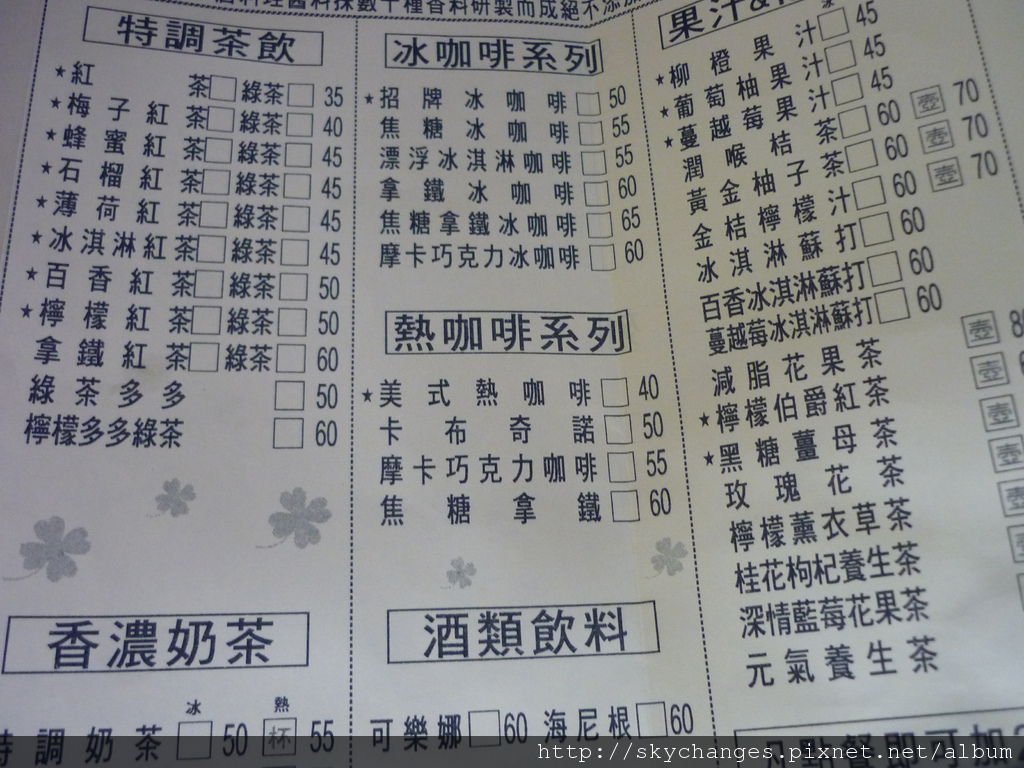 料理醬料採數十種香料研製而成絕不添加
特調茶飲
★紅茶□綠茶□ 35
★梅子紅茶□綠茶□ 40
★蜂蜜紅茶□綠茶□ 45
★石榴紅茶□綠茶□ 45
★薄荷紅茶□綠茶□ 45
★冰淇淋紅茶□綠茶□ 45
★百香紅茶□綠茶□ 50
★檸檬紅茶□綠茶□ 50
拿鐵紅茶□綠茶□ 60
綠茶多多□ 50
檸檬多多綠茶□ 60
香濃奶茶
冰 熱
特調奶茶□50 杯 55
冰咖啡系列
★招牌冰咖啡□ 50
焦糖冰咖啡□ 55
漂浮冰淇淋咖啡□ 55
拿鐵冰咖啡□ 60
焦糖拿鐵冰咖啡□ 65
摩卡巧克力冰咖啡□ 60
熱咖啡系列
★美式熱咖啡□ 40
卡布奇諾□ 50
摩卡巧克力咖啡□ 55
焦糖拿鐵□ 60
酒類飲料
可樂娜□60 海尼根□60
果汁&
★柳橙果汁□ 45
★葡萄柚果汁□ 45
★蔓越莓果汁□ 45
潤喉桔茶□ 60 壺 70
黃金柚子茶□ 60 壺 70
金桔檸檬汁□ 60 壺 70
冰淇淋蘇打□ 60
百香冰淇淋蘇打□ 60
蔓越莓冰淇淋蘇打□ 60
減脂花果茶 壺 8
★檸檬伯爵紅茶 壺
★黑糖薑母茶 壺
玫瑰花茶 壺
檸檬薰衣草茶 壺
桂花枸杞養生茶
深情藍莓花果茶
元氣養生茶
點餐即可加
http://skychanges.pixnet.net/album